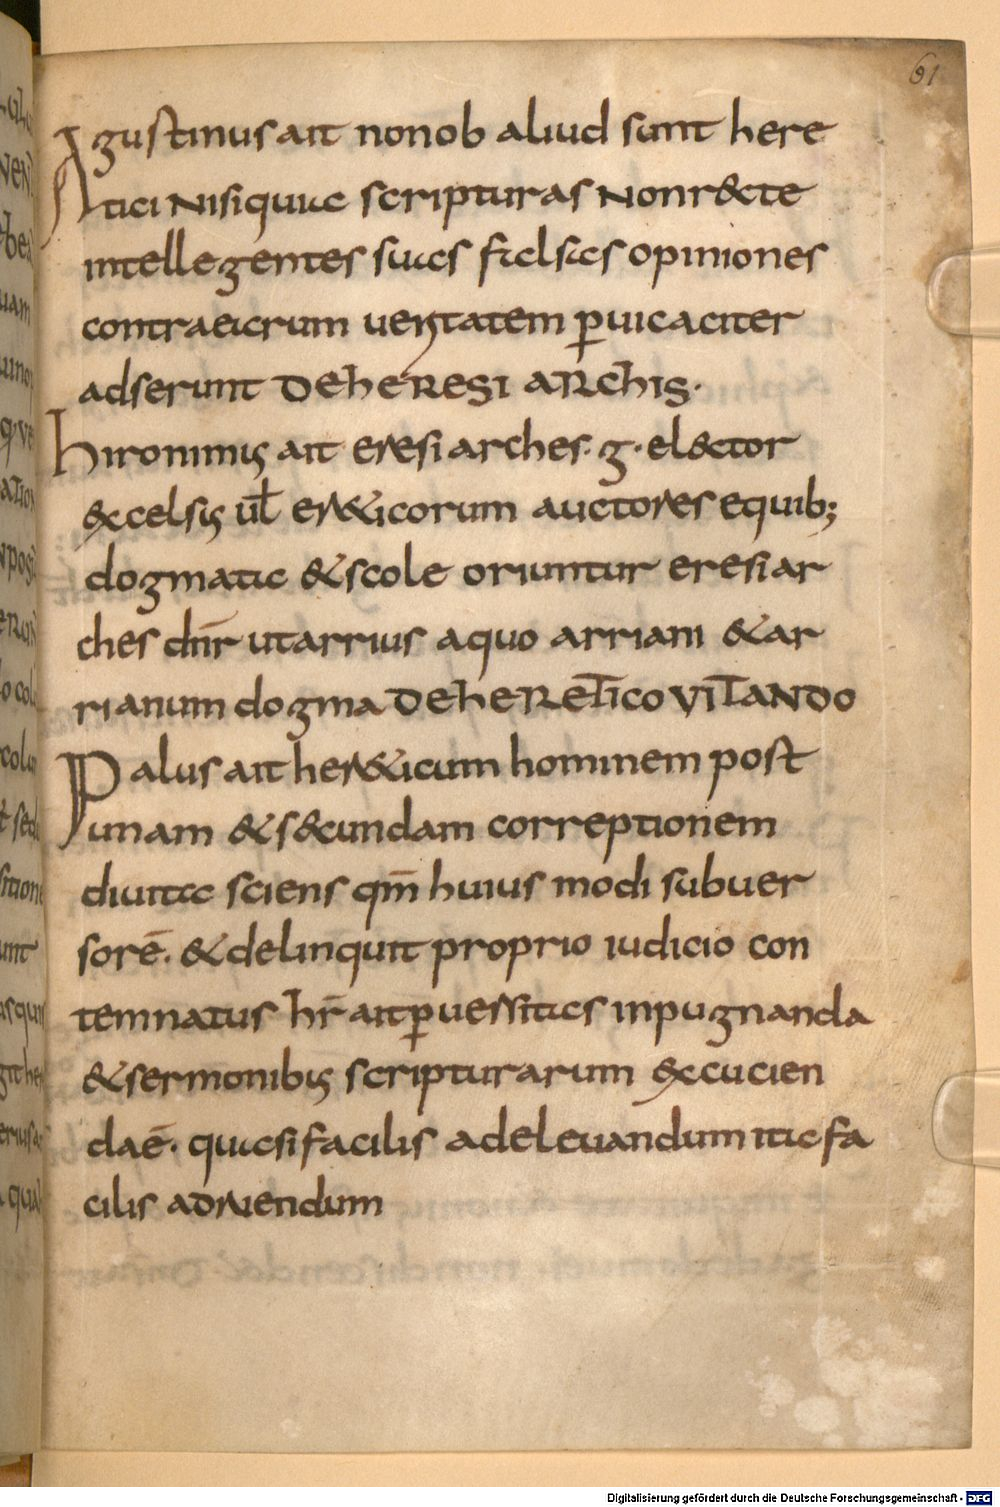 61
Agustinus ait non ob aliud sunt here
tici Nisi quia scripturas Non r&cte
intellegentes suas falsas opiniones
contra earum ueritatem p̱uicaciter
adserunt DE hERESI ARChIS·
hironimus ait eresiarches· g· el&ctor
&celsus ūl er&icorum auctores equib;
dogmata & scole oriuntur eresiar
ches dn̄r ut arrius aquo arriani & ar
rianum dogma DE hERETICO VITANDO
Paulus ait her&icum hominem post
unam & s&cundam correptionem
diuita sciens qm̄ huius modi subuer
sor ē· & delinquit proprio iudicio con
temnatus hr̄ ait p̱uersitas inpugnanda
& sermonibus scripturarum &cucien
da ē· quasi facilis adeleuandum ita fa
cilis adruendum
Digitalisierung gefördert durch die Deutsche Forschungsgemeinschaft - DFG